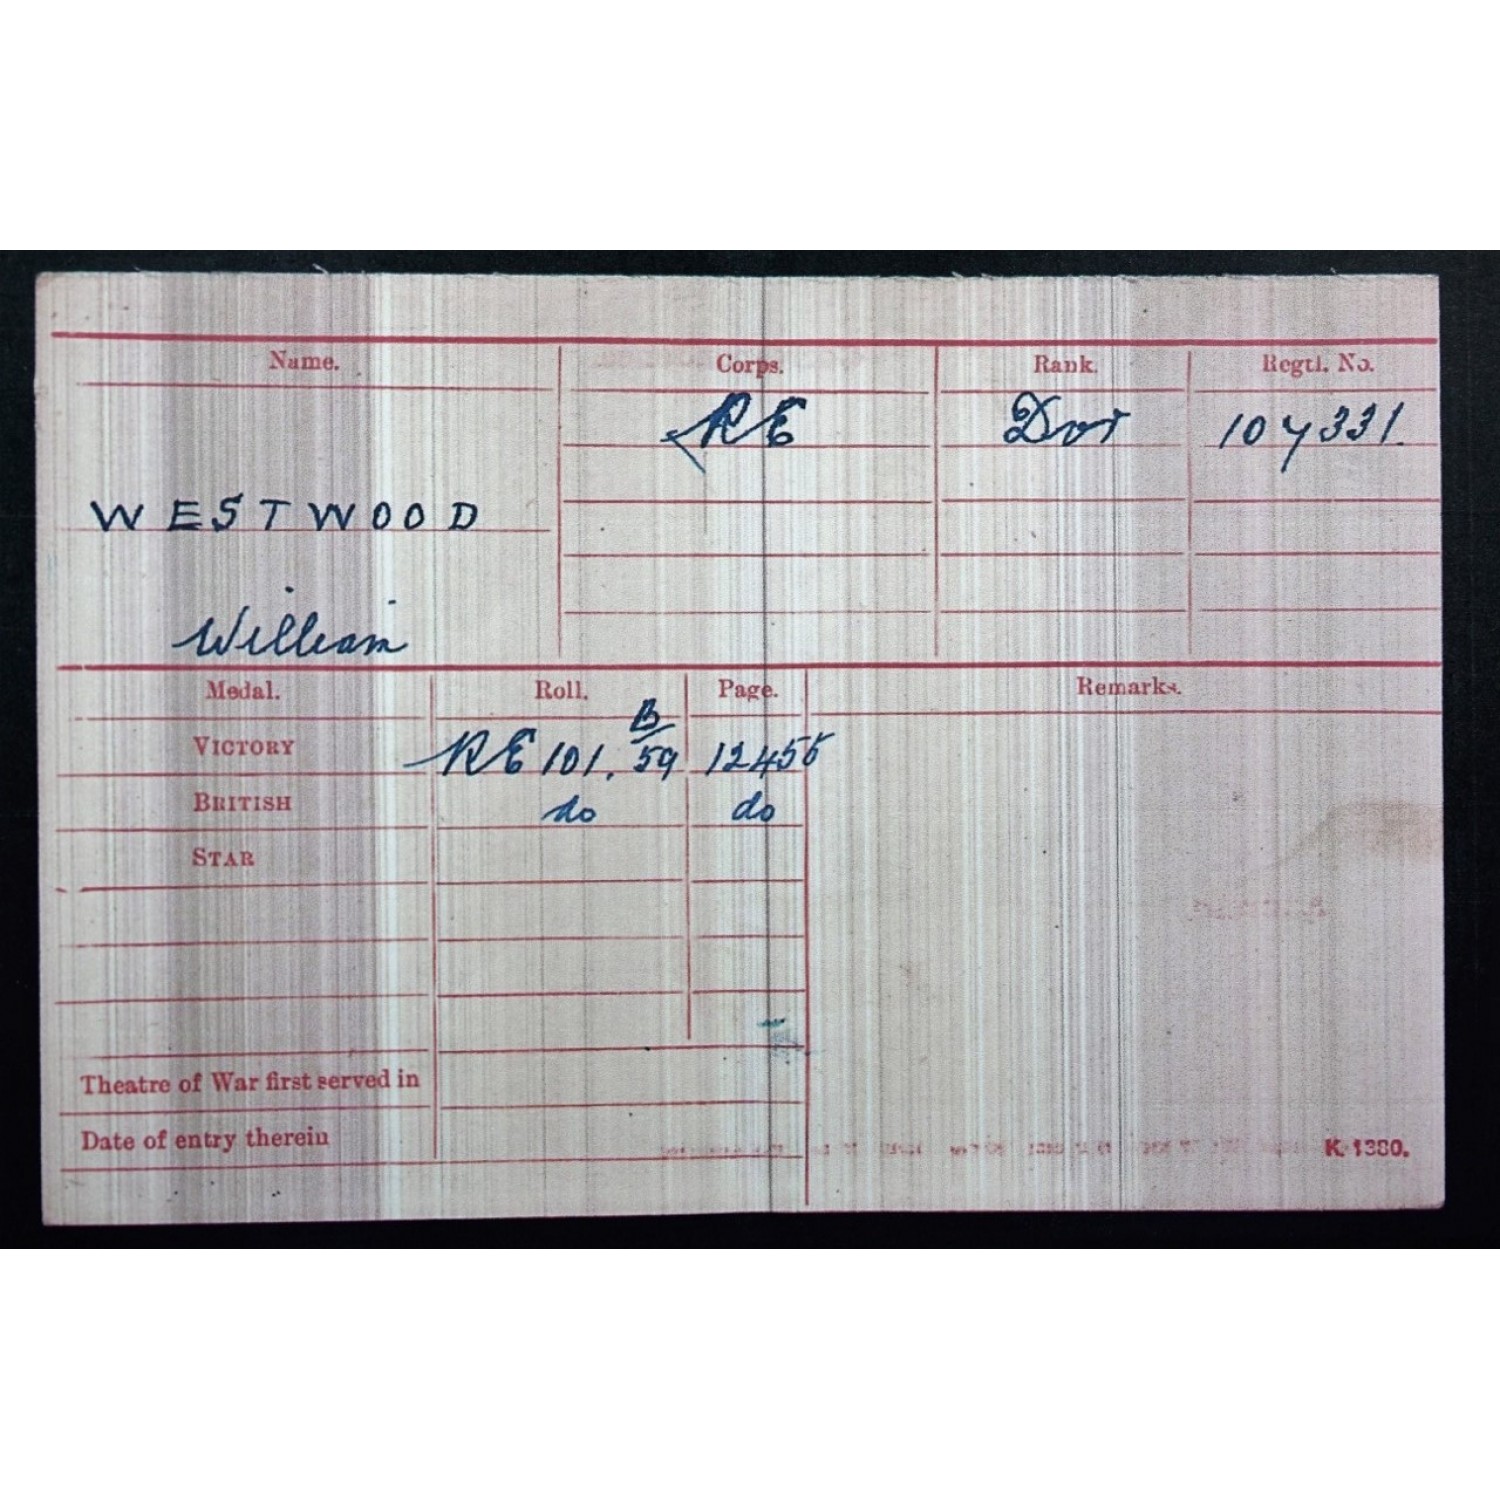 Name. Corps. Rank. Regtl. No.
RE Dvr 107331.
WESTWOOD
William
Medal. Roll. Page. Remarks.
VICTORY RE 101. B/59 12455
BRITISH do do
STAR
Theatre of War first served in
Date of entry therein
K. 1380.